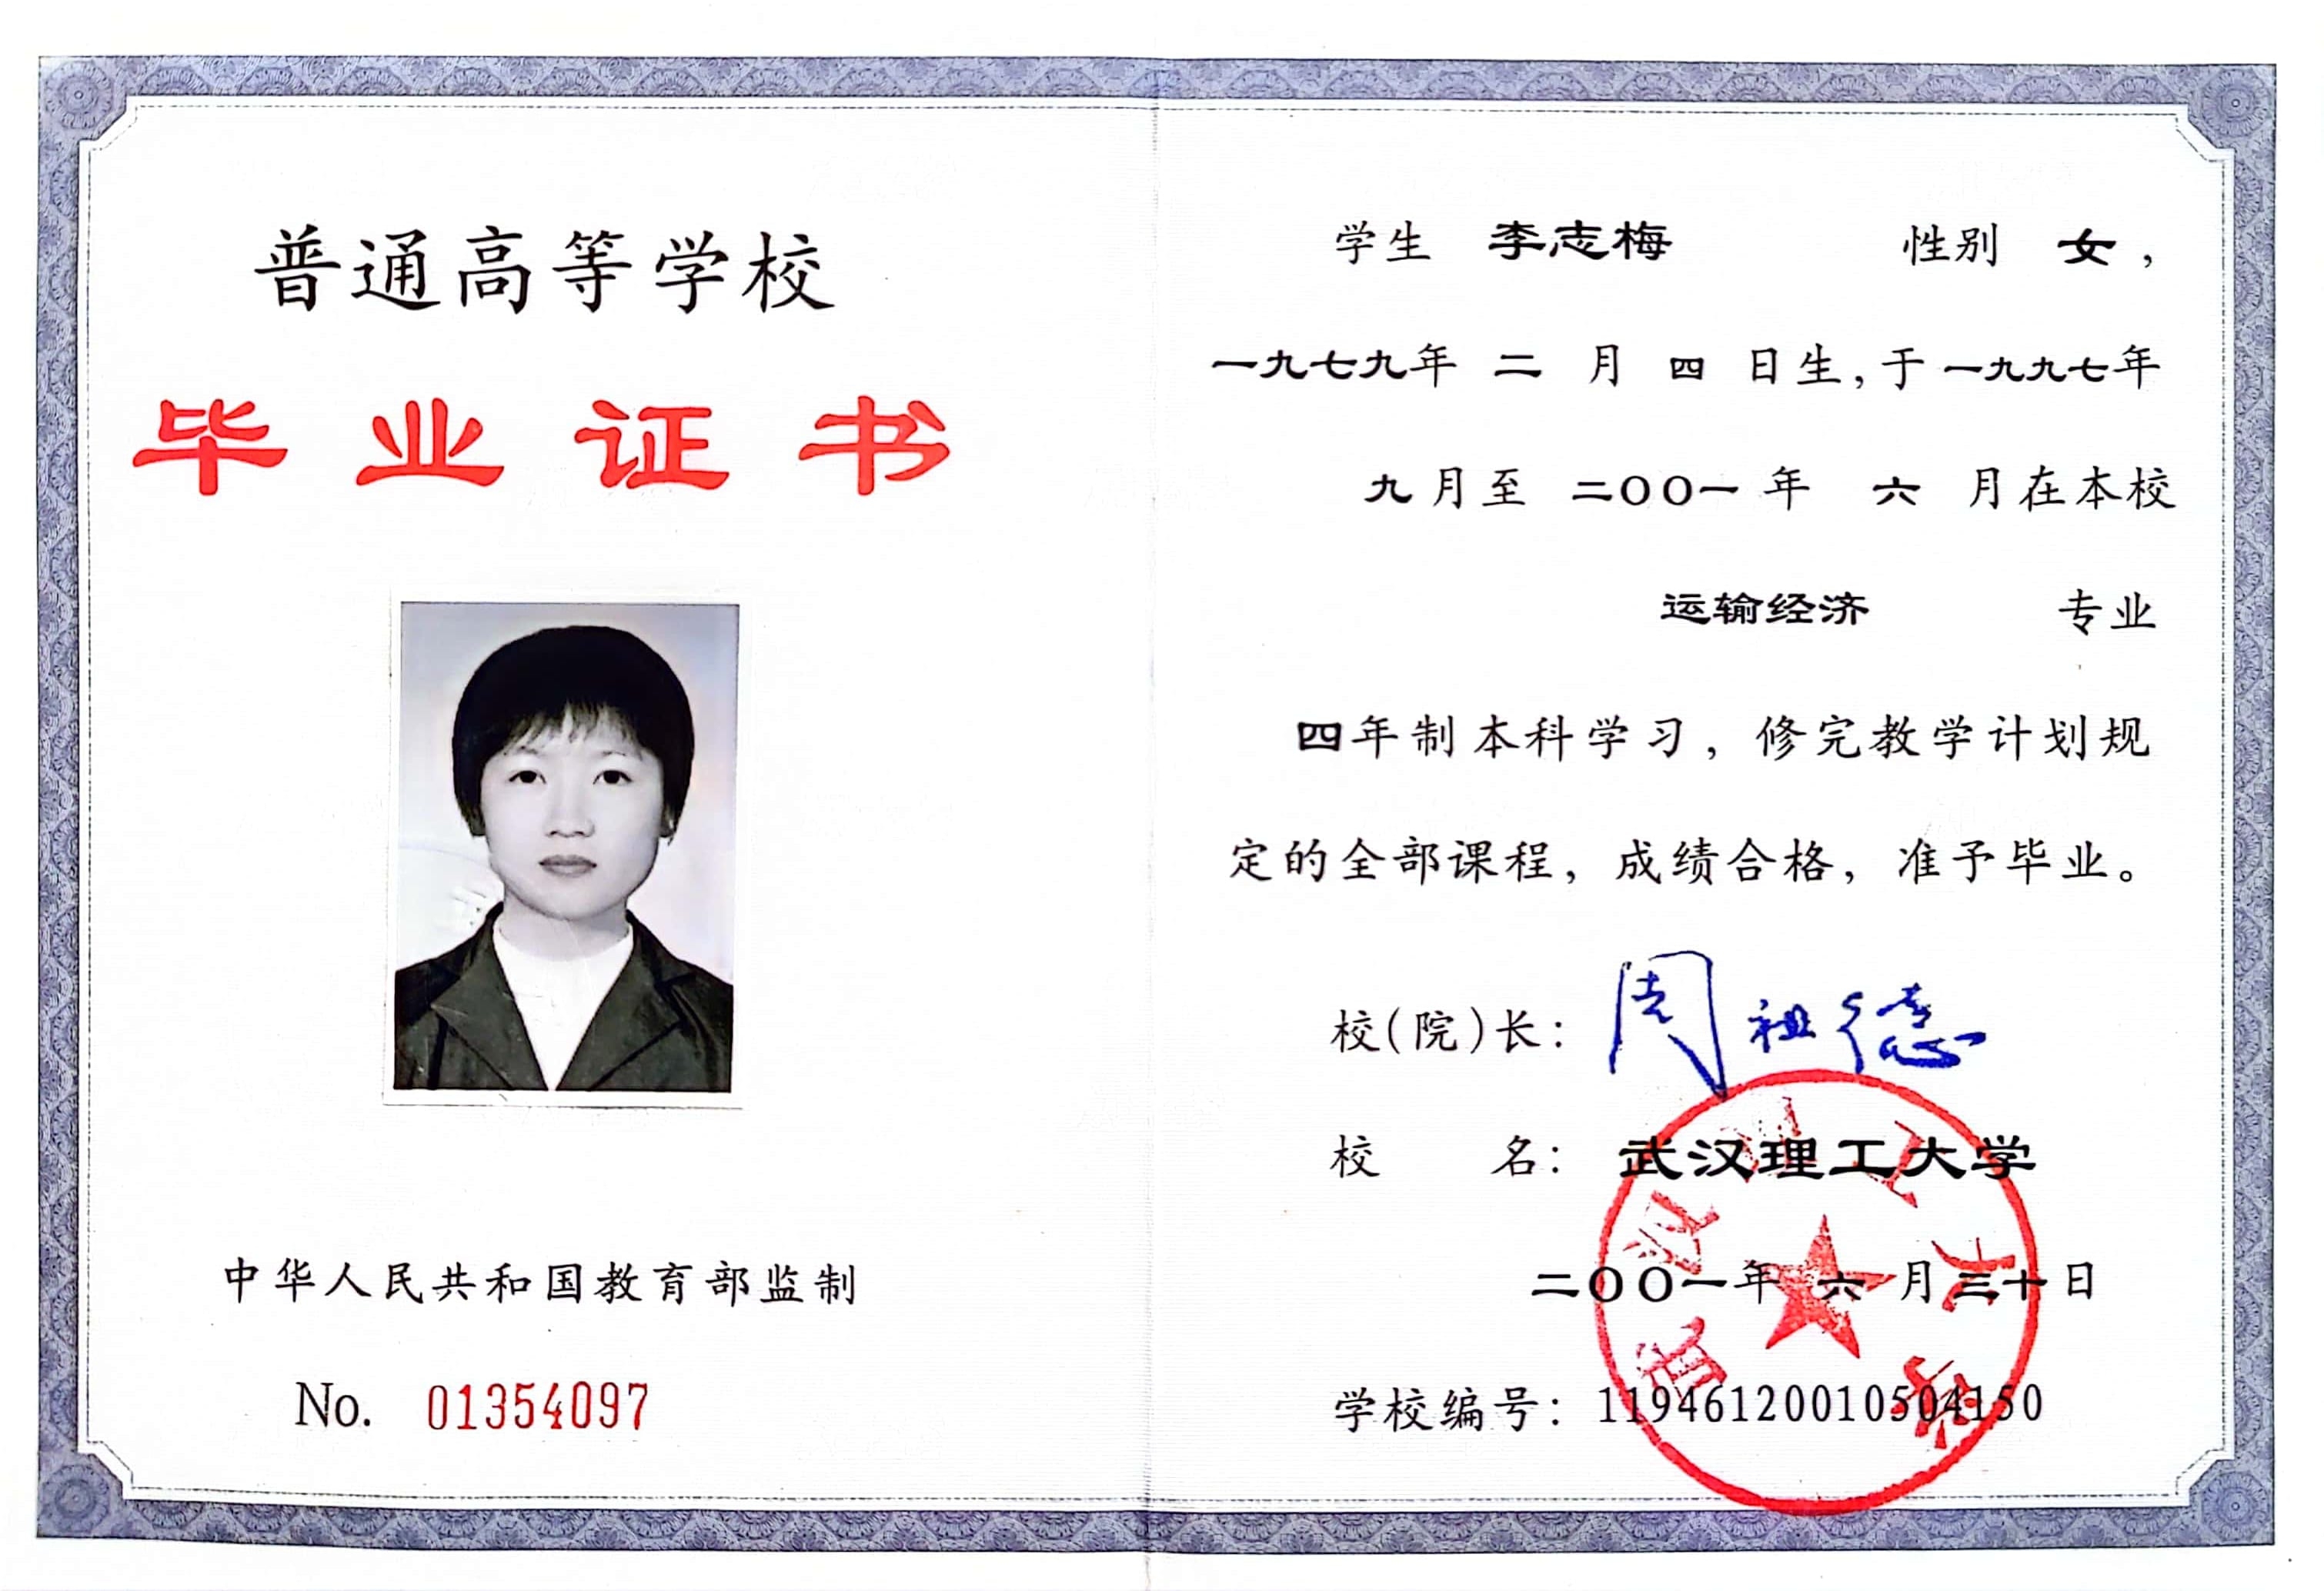 普通高等学校
毕业证书
中华人民共和国教育部监制
No. 01354097
学生 李志梅 性别 女，
一九七九年 二 月 四 日生，于一九九七年
九月至 二〇〇一 年 六 月在本校
运输经济 专业
四年制本科学习，修完教学计划规
定的全部课程，成绩合格，准予毕业。
校(院)长： 周祖德
校 名： 武汉理工大学
二〇〇一年 六 月三十日
学校编号：119461200105041 50